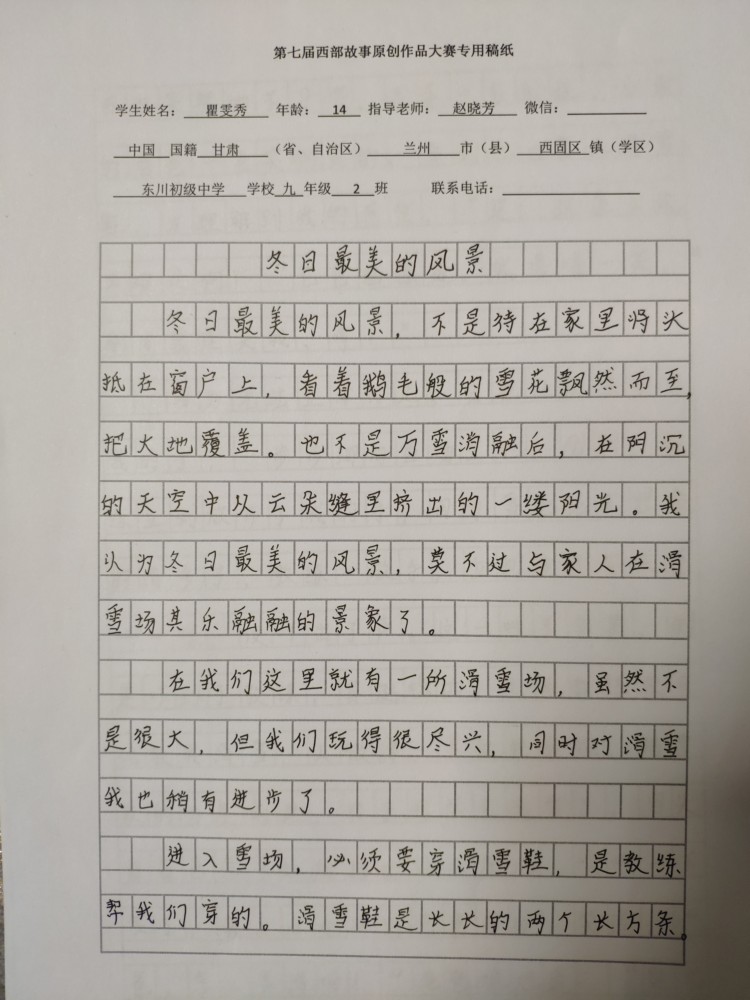 第七届西部故事原创作品大赛专用稿纸
学生姓名： 瞿雯秀 年龄： 14 指导老师： 赵晓芳 微信：
中国 国籍 甘肃 （省、自治区） 兰州 市（县） 西固区 镇（学区）
东川初级中学 学校 九 年级 2 班 联系电话：
冬日最美的风景
冬日最美的风景，不是待在家里将头
抵在窗户上，看着鹅毛般的雪花飘然而至，
把大地覆盖。也不是万雪消融后，在阴沉
的天空中从云朵缝里挤出的一缕阳光。我
认为冬日最美的风景，莫不过与家人在滑
雪场其乐融融的景象了。
在我们这里就有一所滑雪场，虽然不
是很大，但我们玩得很尽兴，同时对滑雪
我也稍有进步了。
进入雪场，必须要穿滑雪鞋，是教练
帮我们穿的。滑雪鞋是长长的两个长方条。